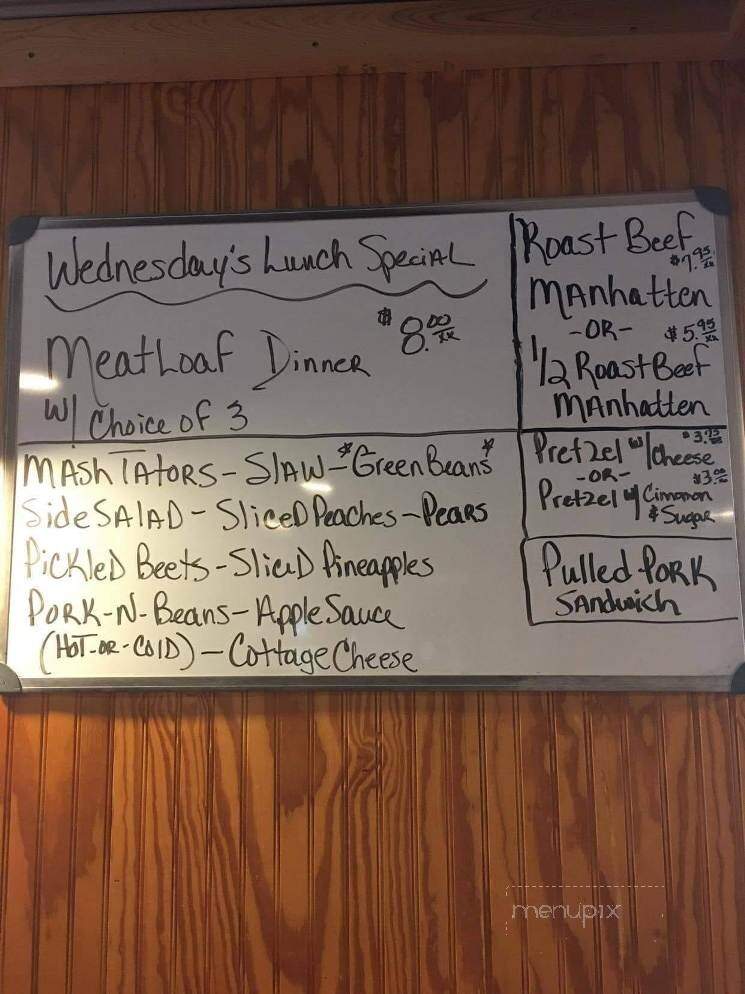 Wednesday's Lunch Special
MeatLoaf Dinner $8.00/xx
w/ Choice of 3
Mash Tators - Slaw - *Green Beans*
Side Salad - Sliced Peaches - Pears
Pickled Beets - Sliced Pineapples
Pork-N-Beans - Apple Sauce
(Hot-or-Cold) - Cottage Cheese
Roast Beef
$7.95/xx
Manhatten
-OR- $5.95/xx
1/2 Roast Beef
Manhatten
Pretzel w/cheese $3.75
-OR- $3.00
Pretzel w/ Cinamon
& Sugar
Pulled Pork
Sandwich
menupix